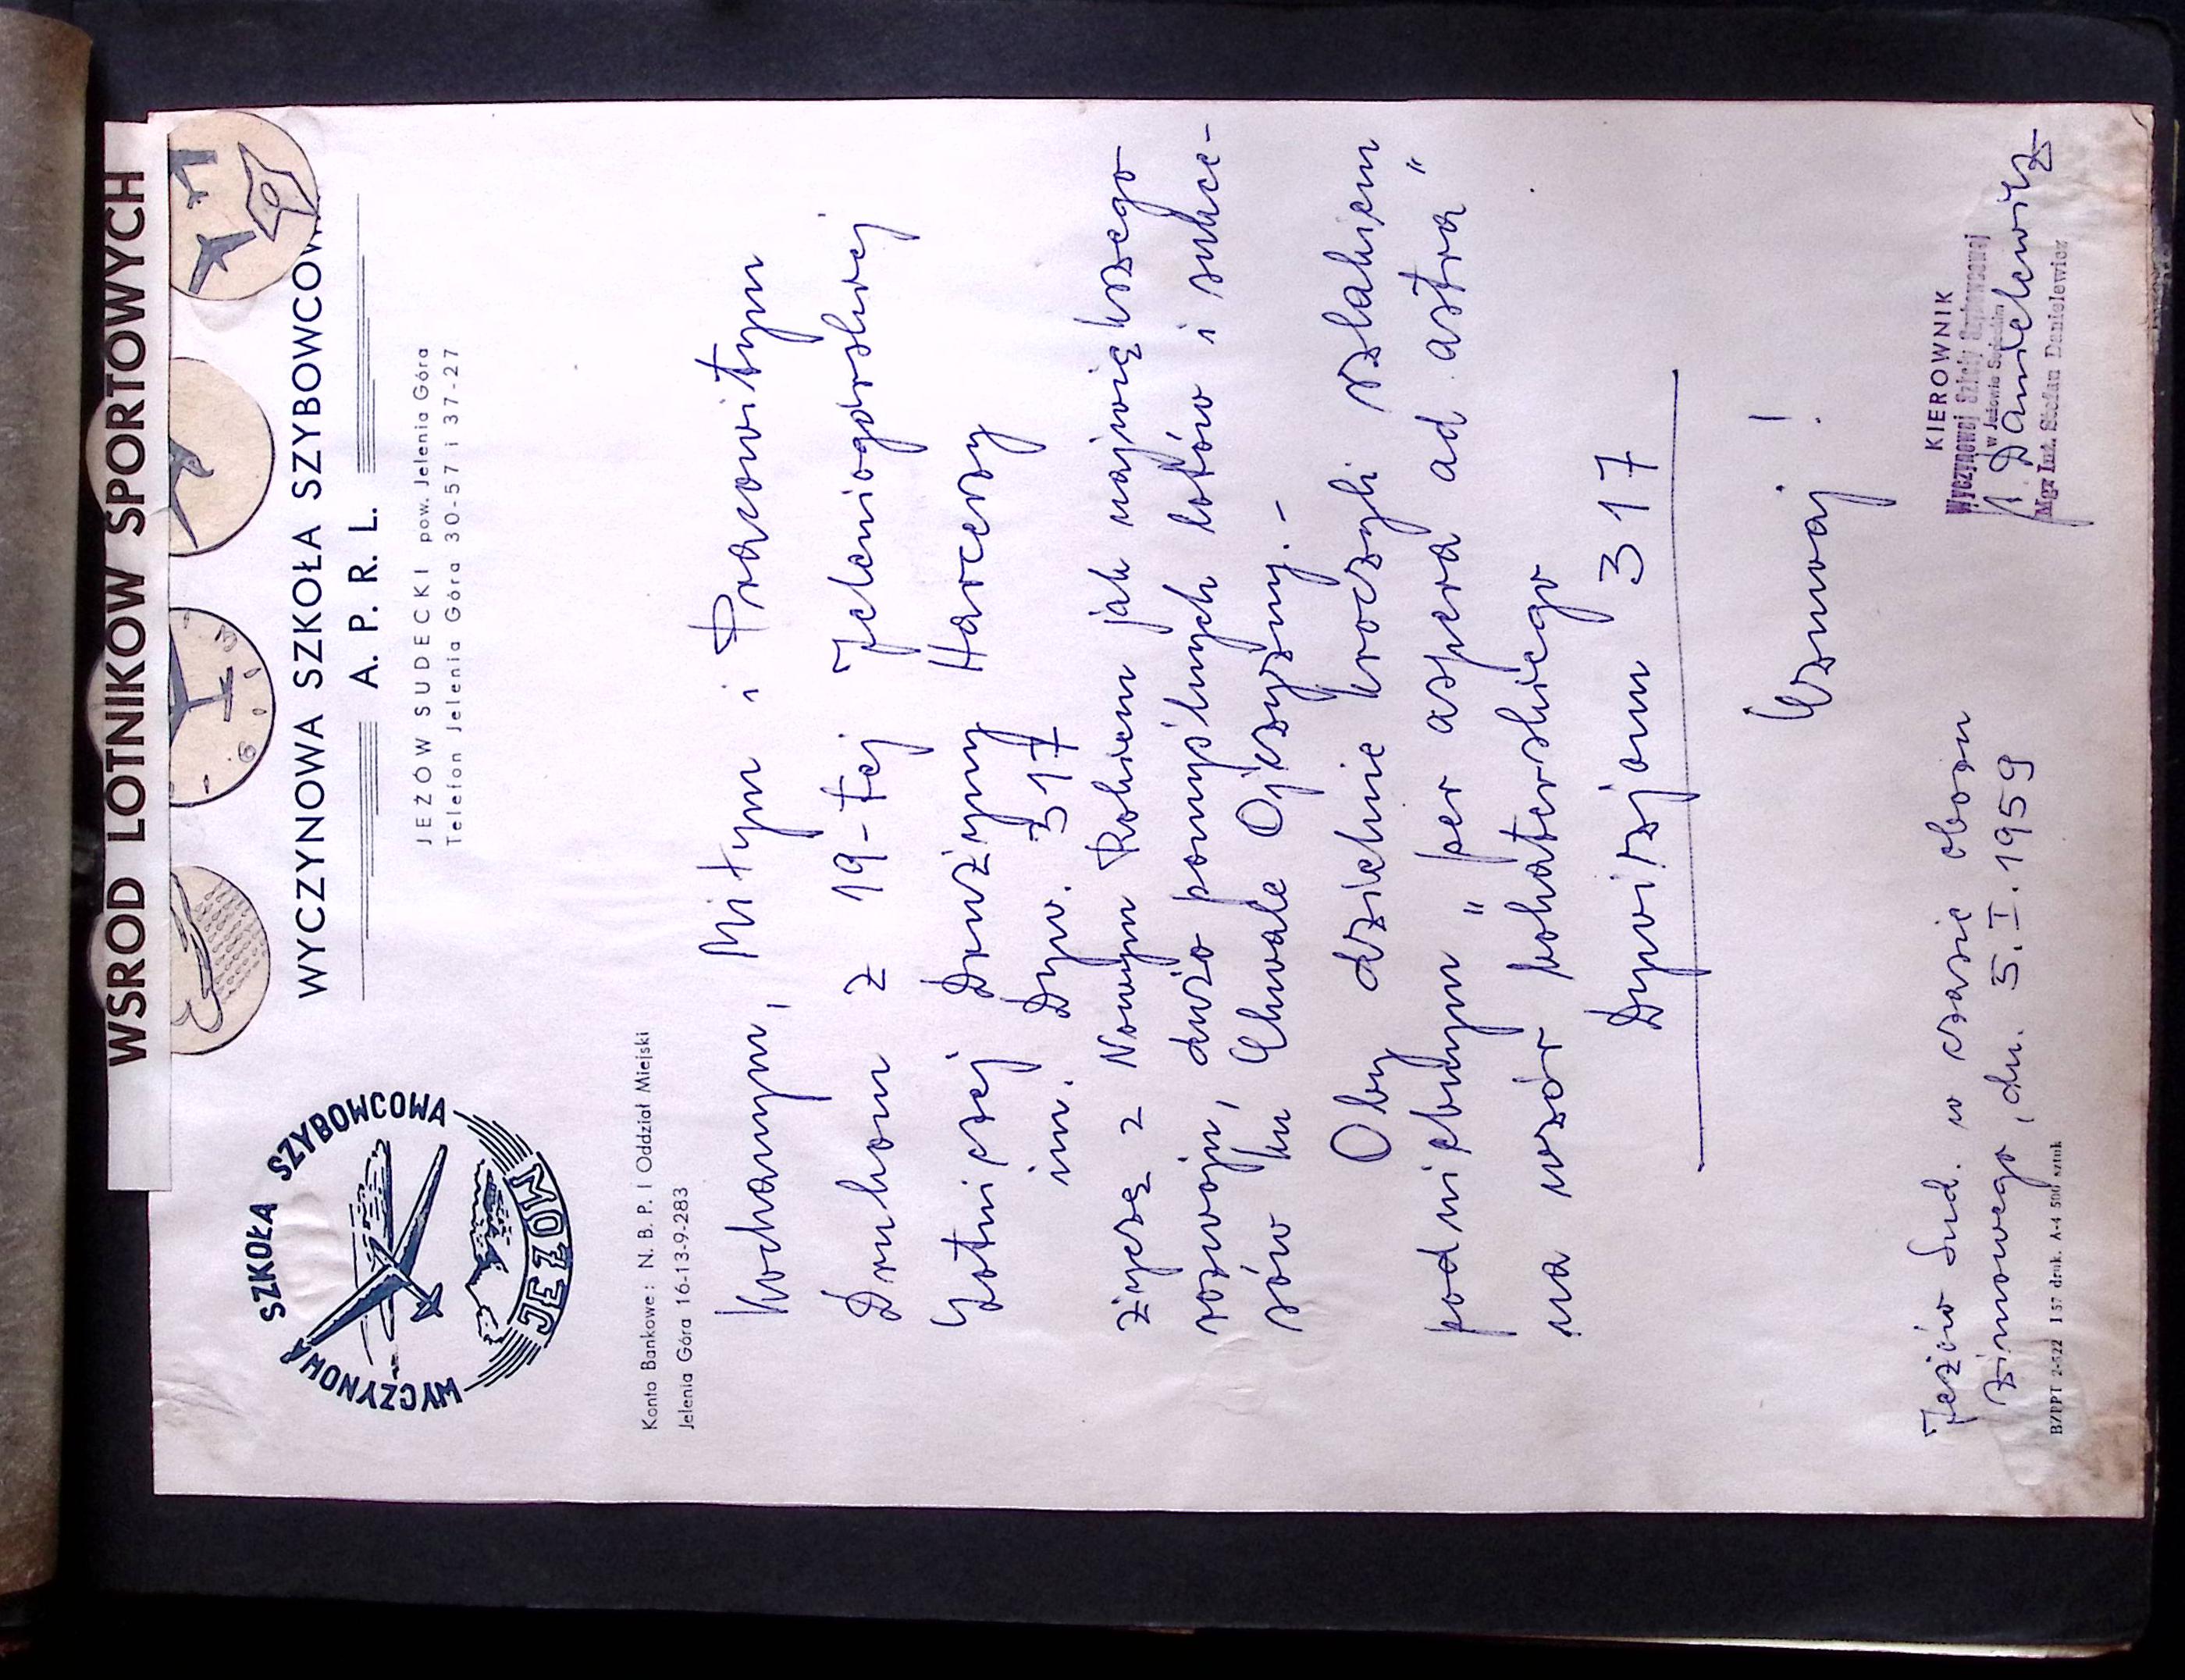 WSROD LOTNIKOW SPORTOWYCH
WYCZYNOWA SZKOŁA SZYBOWCOWA
JEŻÓW
WYCZYNOWA SZKOŁA SZYBOWCOW
A. P. R. L.
JEŻÓW SUDECKI pow. Jelenia Góra
Telefon Jelenia Góra 30-57 i 37-27
Konto Bankowe: N. B. P. I Oddział Miejski
Jelenia Góra 16-13-9-283
Kochanym, Miłym i Pracowitym
Druhom z 19-tej Jeleniogórskiej
Lotniczej Drużyny Harcerzy
im. Dyw. 317
życzę z Nowym Rokiem jak największego
rozwoju, dużo pomyślnych lotów i sukce-
sów ku Chwale Ojczyzny.-
Oby dzielnie kroczyli szlakiem
podniebnym "per aspera ad astra"
na wzór bohaterskiego
Dywizjonu 317
Czuwaj!
KIEROWNIK
Wyczynowej Szkoły Szybowcowej
w Jeżowie Sudeckim
Danielewicz
Mgr Inż. Stefan Danielewicz
Jeżów Sud. w czasie obozu
zimowego, dn. 5.I.1959
BZPPT 2-522 1 57 druk. A-4 500 sztuk